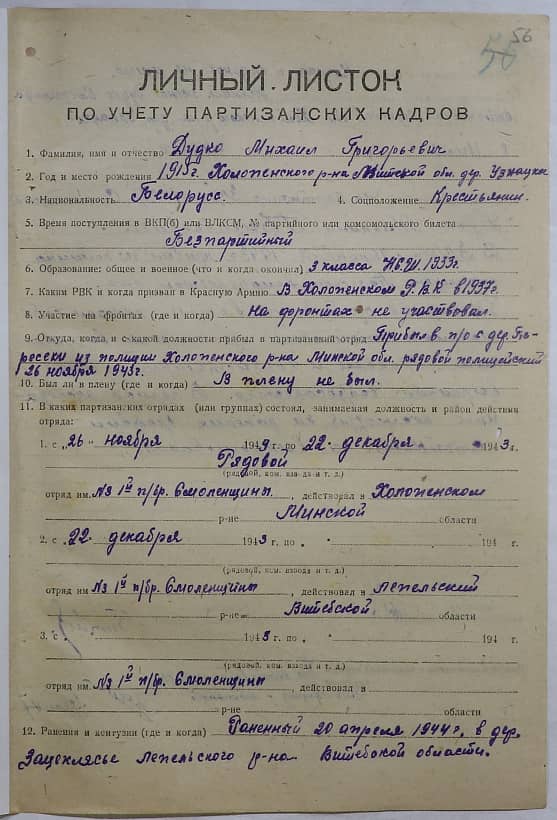 56
56
ЛИЧНЫЙ ЛИСТОК
ПО УЧЕТУ ПАРТИЗАНСКИХ КАДРОВ
1. Фамилия, имя и отчество Дудко Михаил Григорьевич
2. Год и место рождения Холопенского р-на обл. дер.
3. Национальность Белорусс. 4. Соцположение Крестьянин.
5. Время поступления в ВКП(б) или ВЛКСМ, № партийного или комсомольского билета
Безпартийный
6. Образование: общее и военное (что и когда окончил) 3 класса 1933г.
7. Каким РВК и когда призван в Красную Армию В Холопенском Р.В.К в 1937г.
8. Участие на фронтах (где и когда) на фронтах не участвовал.
9. Откуда, когда и с какой должности прибыл в партизанский отряд Прибыл в п/о с дер. Пе-
ресеки из полиции Холопенского р-на Минской обл. рядовой полицейский
26 ноября 1943г.
10. Был ли в плену (где и когда) В плену не был.
11. В каких партизанских отрядах (или группах) состоял, занимаемая должность и район действия
отряда:
1. с „26„ ноября 1943 г. по 22 декабря 1943 г.
Рядовой
(рядовой, ком. взвода и т. д.)
отряд им. №3 1й п/бр. Смоленщины, действовал в Холопенском
р-не Минской области
2. с „22„ декабря 1943 г. по 194 г.
(рядовой, ком. взвода и т. д.)
отряд им. №3 1й п/бр. Смоленщины, действовал в Лепельский
р-не Витебской области
3. с 1943 г. по 194 г.
(рядовой, ком. взвода и т. д.)
отряд им. №3 1й п/бр. Смоленщины, действовал в
р-не области
12. Ранения и контузии (где и когда) Раненный 20 апреля 1944г, в дер.
Зацеклясье Лепельского р-на Витебской области.